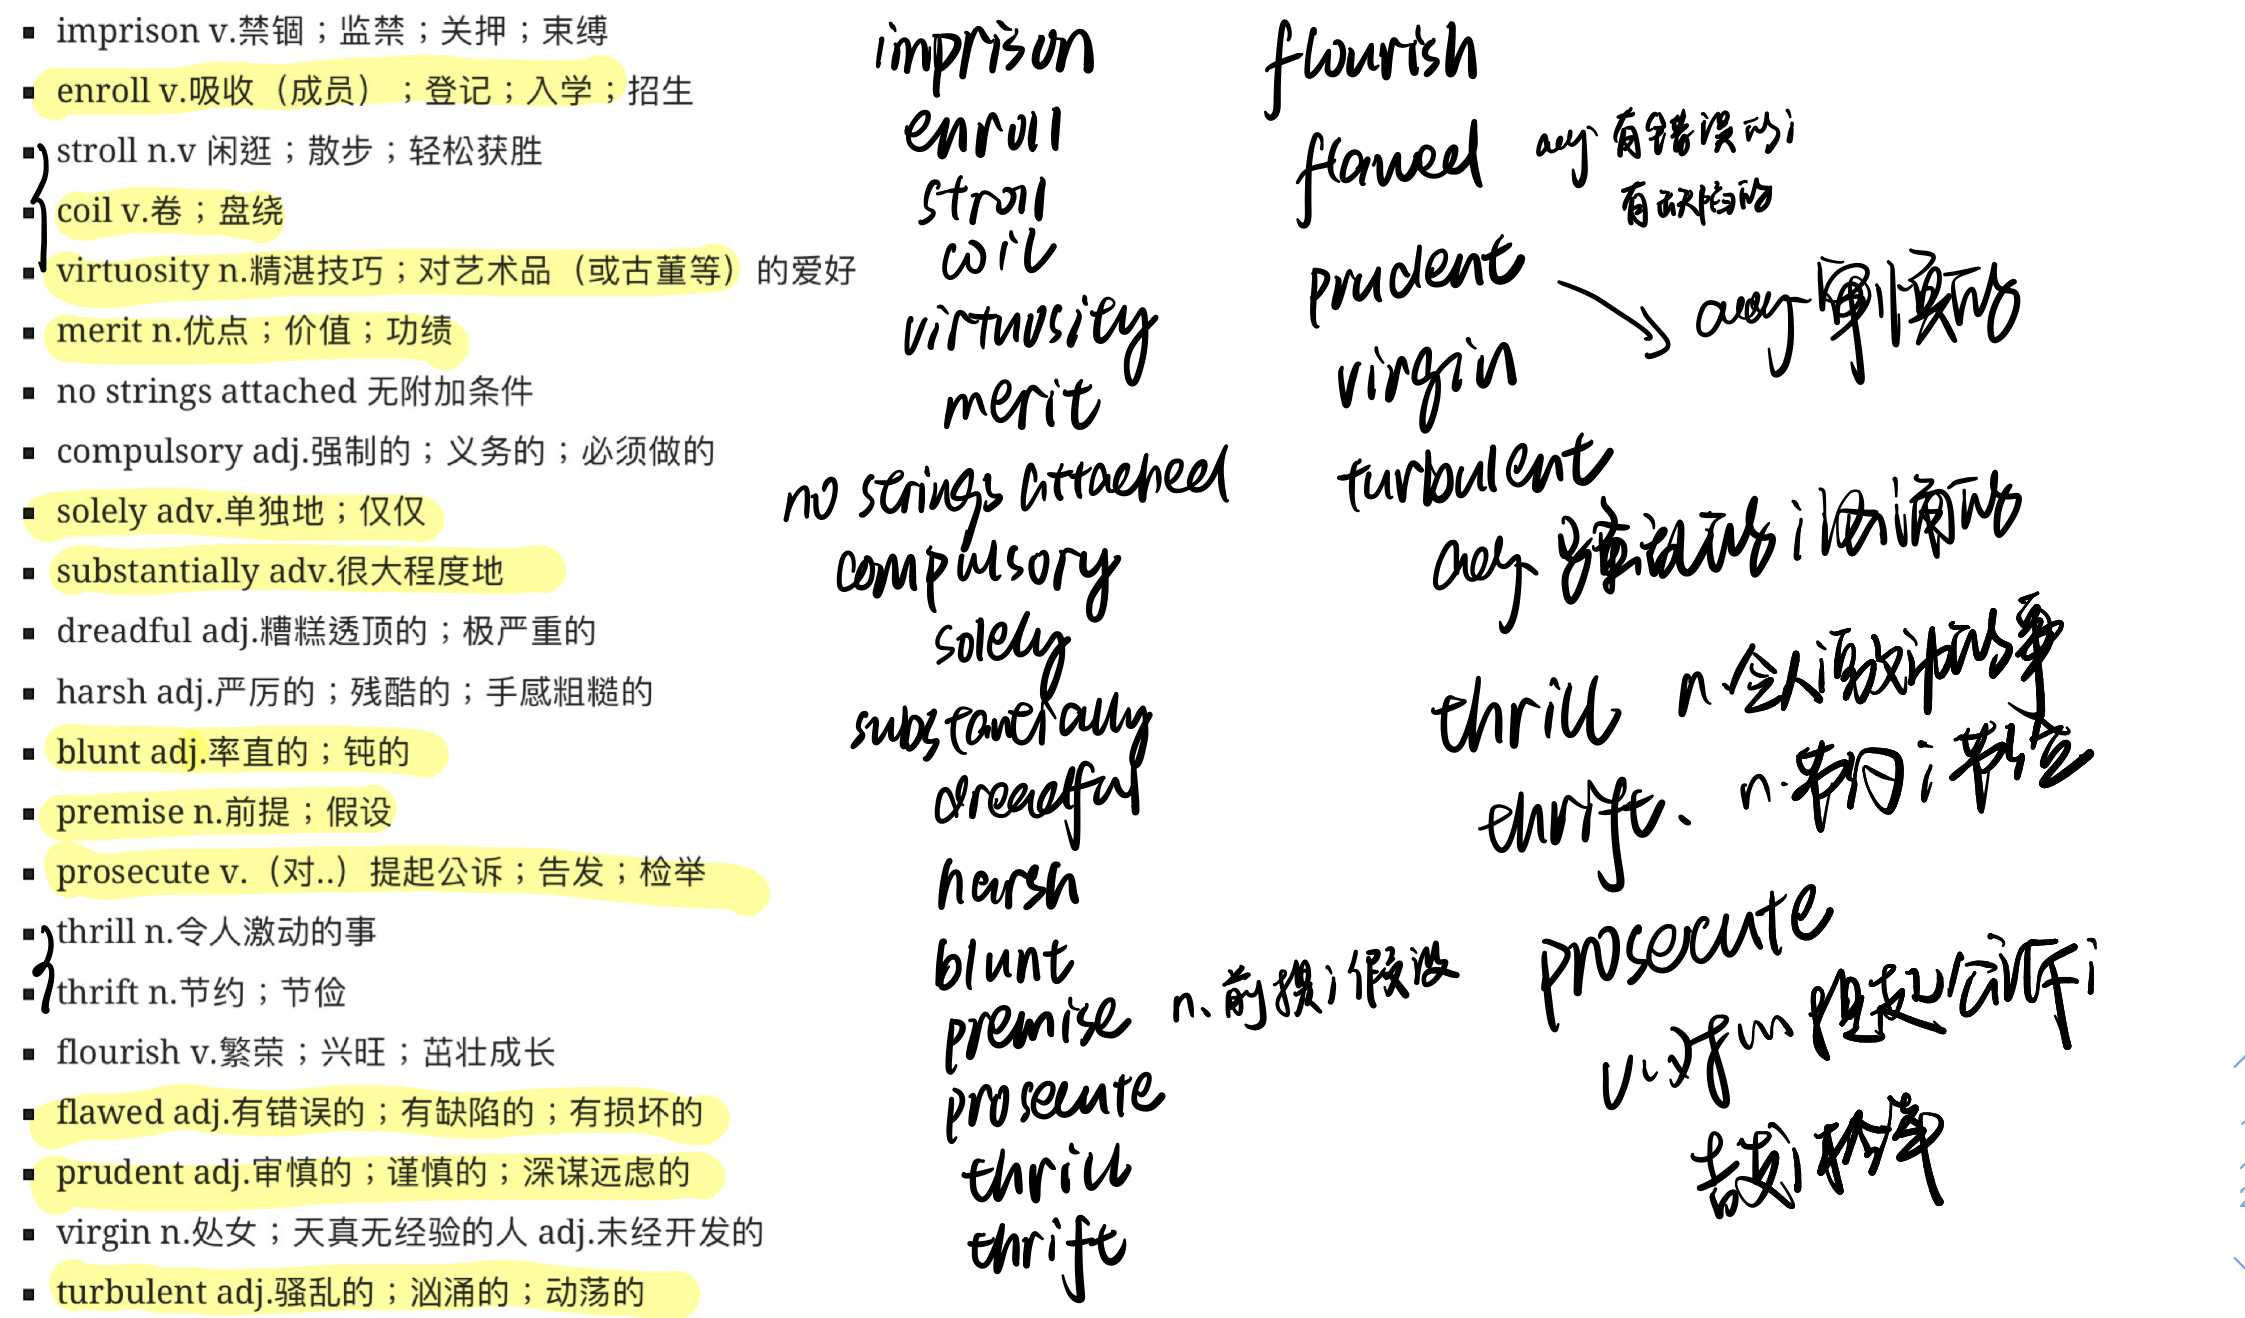 imprison v.禁锢；监禁；关押；束缚
enroll v.吸收（成员）；登记；入学；招生
stroll n.v 闲逛；散步；轻松获胜
coil v.卷；盘绕
virtuosity n.精湛技巧；对艺术品（或古董等）的爱好
merit n.优点；价值；功绩
no strings attached 无附加条件
compulsory adj.强制的；义务的；必须做的
solely adv.单独地；仅仅
substantially adv.很大程度地
dreadful adj.糟糕透顶的；极严重的
harsh adj.严厉的；残酷的；手感粗糙的
blunt adj.率直的；钝的
premise n.前提；假设
prosecute v.（对..）提起公诉；告发；检举
thrill n.令人激动的事
thrift n.节约；节俭
flourish v.繁荣；兴旺；茁壮成长
flawed adj.有错误的；有缺陷的；有损坏的
prudent adj.审慎的；谨慎的；深谋远虑的
virgin n.处女；天真无经验的人 adj.未经开发的
turbulent adj.骚乱的；汹涌的；动荡的
imprison
enroll
stroll
coil
virtuosity
merit
no strings attached
compulsory
solely
substantially
dreadful
harsh
blunt
premise n.前提；假设
prosecute
thrill
thrift
flourish
flawed adj.有错误的；
有缺陷的
prudent adj.审慎的
virgin
turbulent
adj.骚乱的；汹涌的
thrill n.令人激动的事
thrift. n.节约；节俭
prosecute
v.对... 提起公诉；
告发；检举